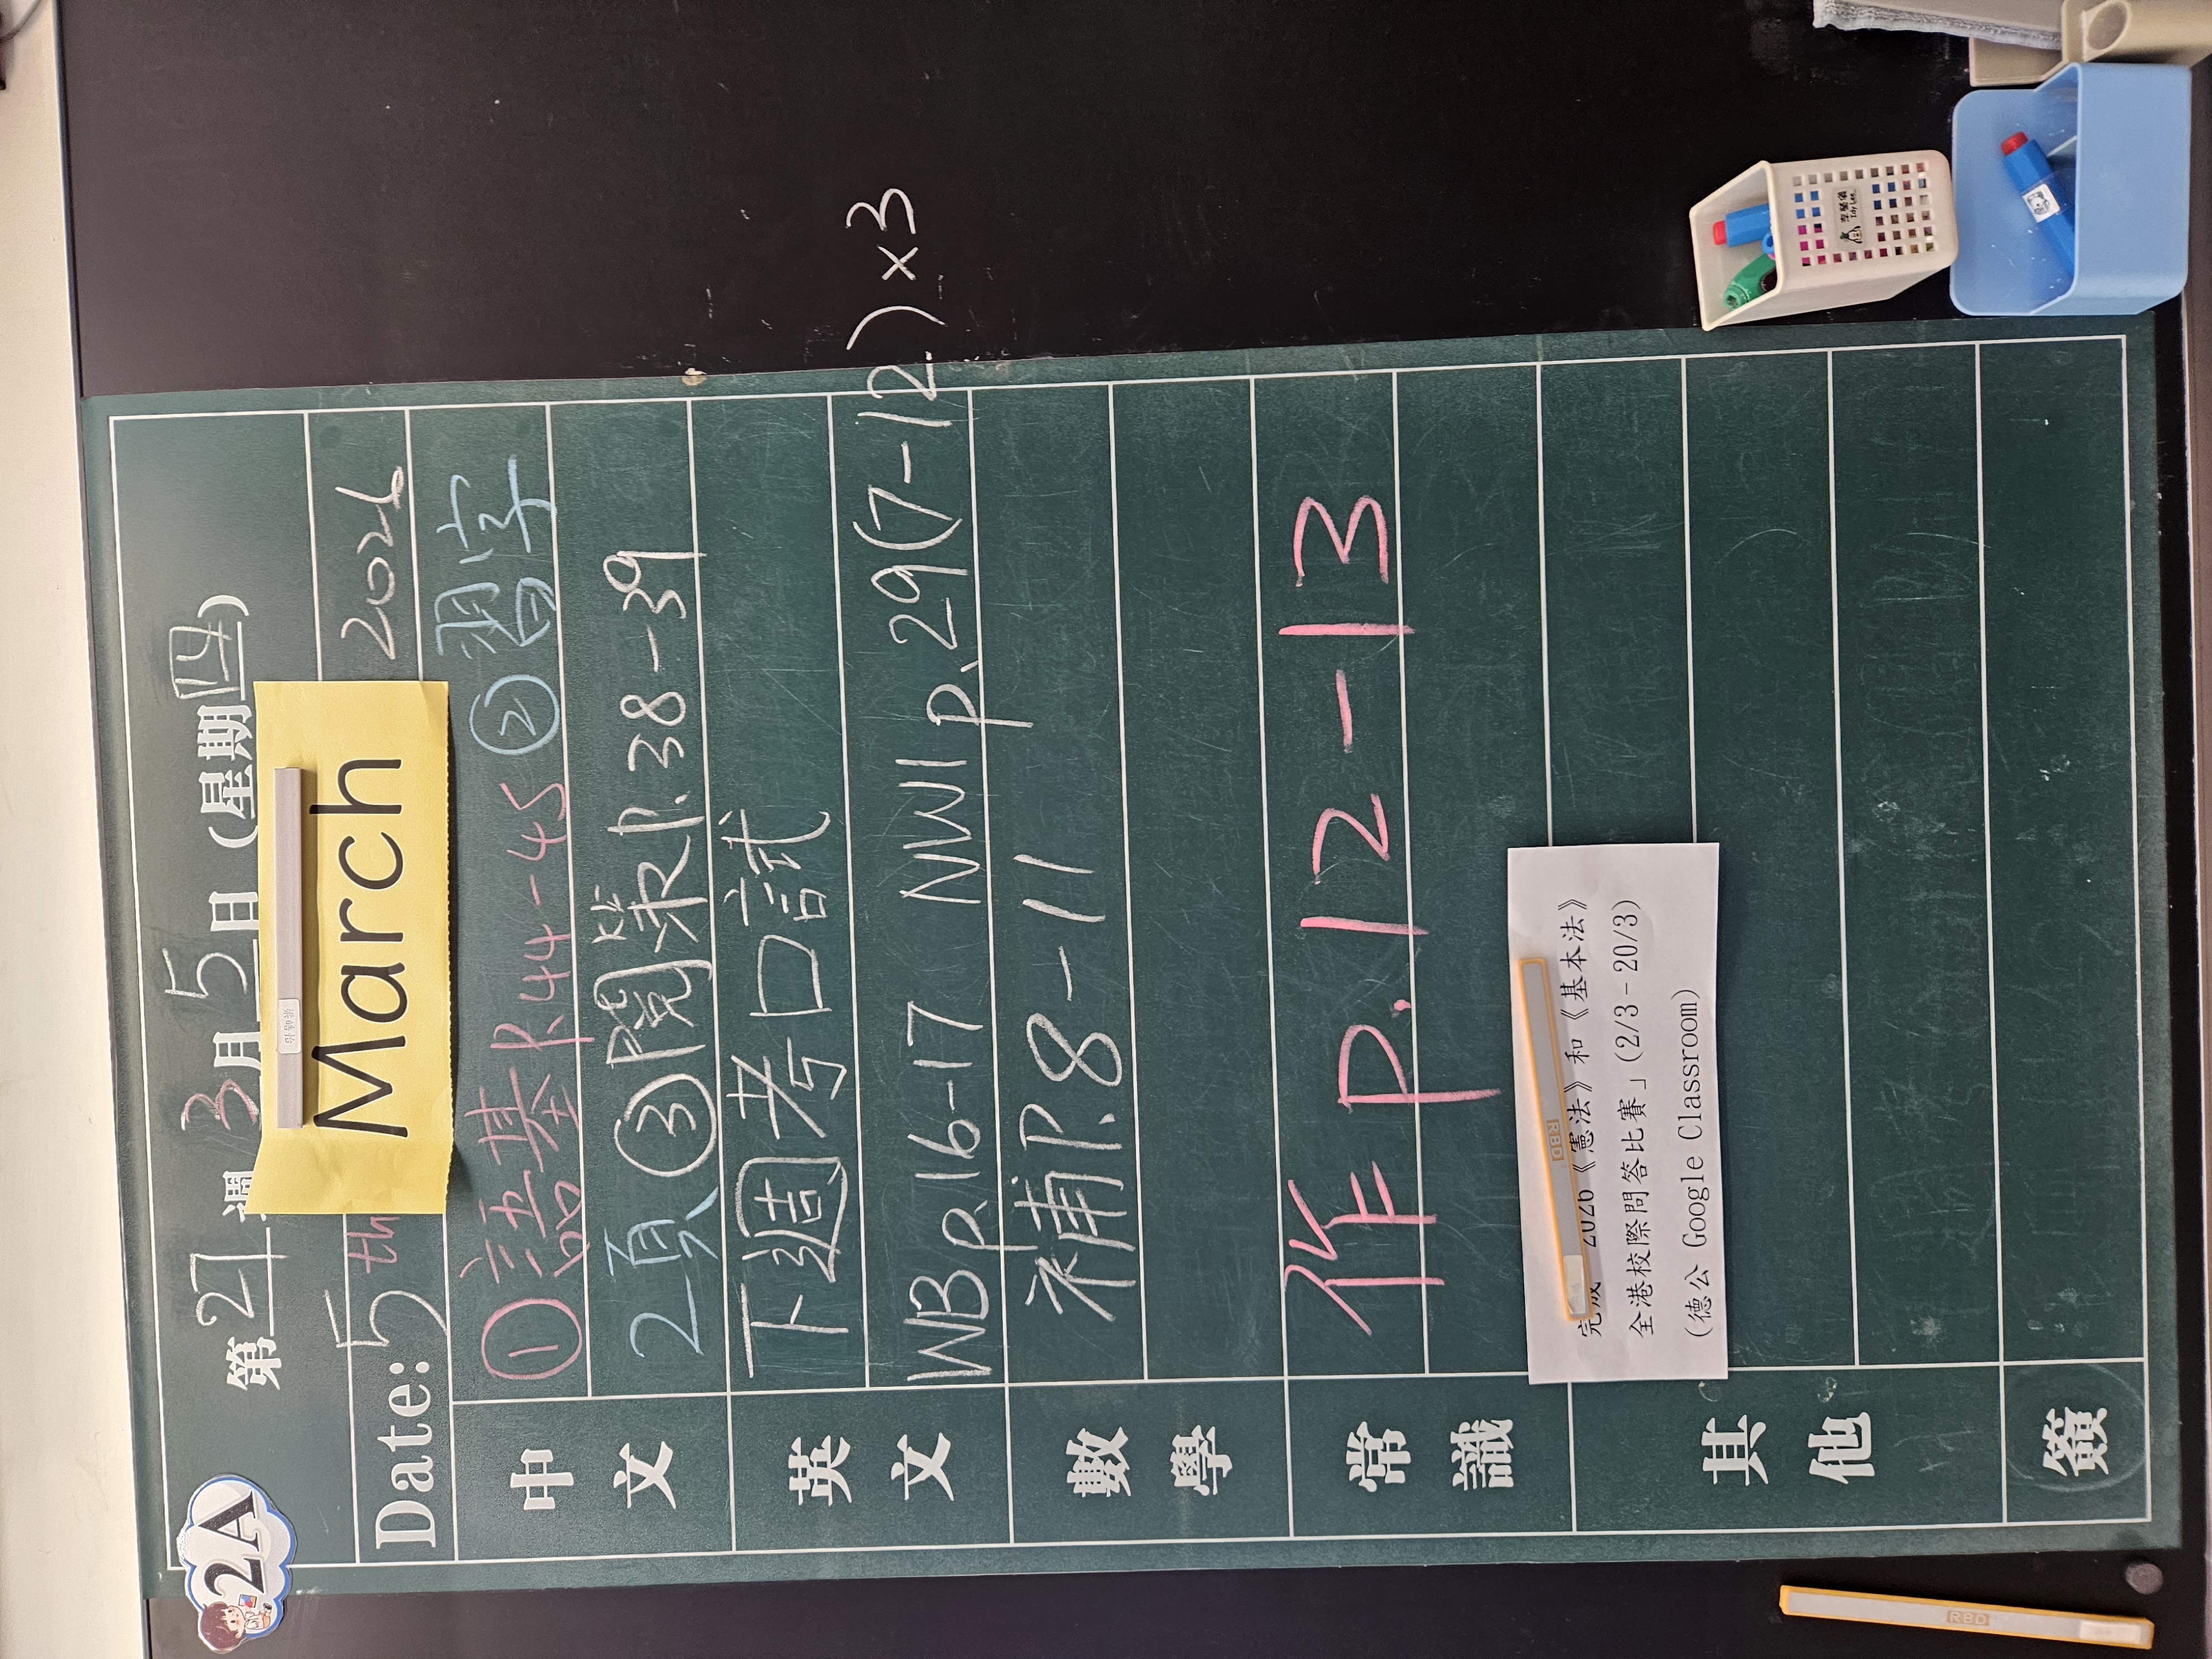 2A
第27週 3月5日(星期四)
Date: 5th March 2026
中文
①語基P.44-45 ②習字
2頁 ③閱樂P.38-39
英文
下週考口試
WB p.16-17 NW1 p.29(7-12)×3
數學
補P.8-11
常識
作 P.12-13
其他
完成 2026《憲法》和《基本法》
全港校際問答比賽」(2/3-20/3)
(德公 Google Classroom)
簽
RBD
RBD